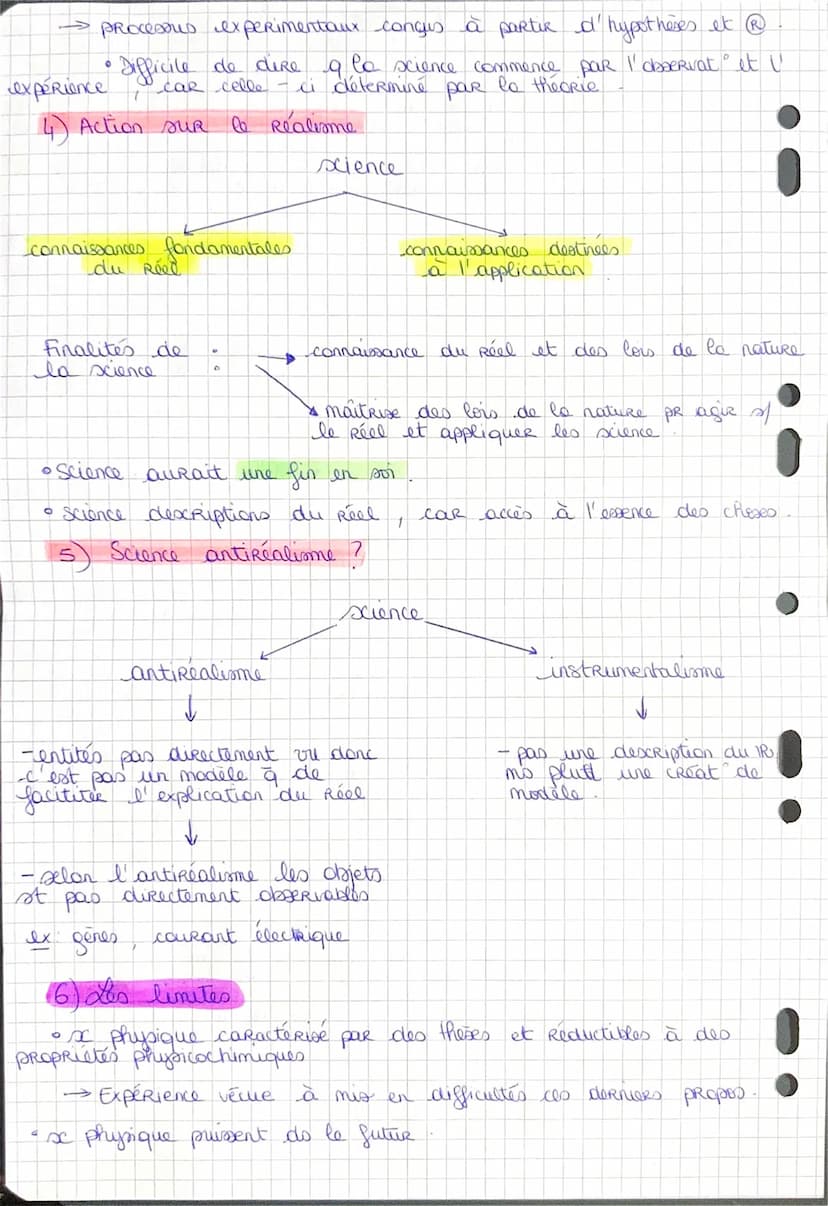 → processus experimentaux conçus à partir d'hypothèses et Ⓡ.
• Difficile de dire q la science commence par l'observat° et l'
expérience, car celle-ci déterminé par la théorie.
4) Action sur le Réalisme
science
connaissances fondamentales
du Réel
connaissances destinées
à l'application
Finalités de
la science :
→ connaissance du Réel et des lois de la nature
maîtrise des lois de la nature pr agir s/
le Réel et appliquer les science.
• Science aurait une fin en soi.
• Science descriptions du Réel, car accès à l'essence des choses.
5) Science antiréalisme ?
science
antiréalisme
instrumentalisme
↓
↓
- entités pas directement vu donc
c'est pas un modèle q̄ de
facititer l'explication du Réel
- pas une description du IR
ms plutt une créat° de
modèle.
↓
- selon l'antiréalisme les objets
st pas directement observables
ex: gènes, courant électrique
6) Les limites
• sc physique caractérisé par des thèses et Réductibles à des
propriétés physicochimiques
→ Expérience vécue à mis en difficultés ces derniers propos.
• sc physique puissent ds le futur.